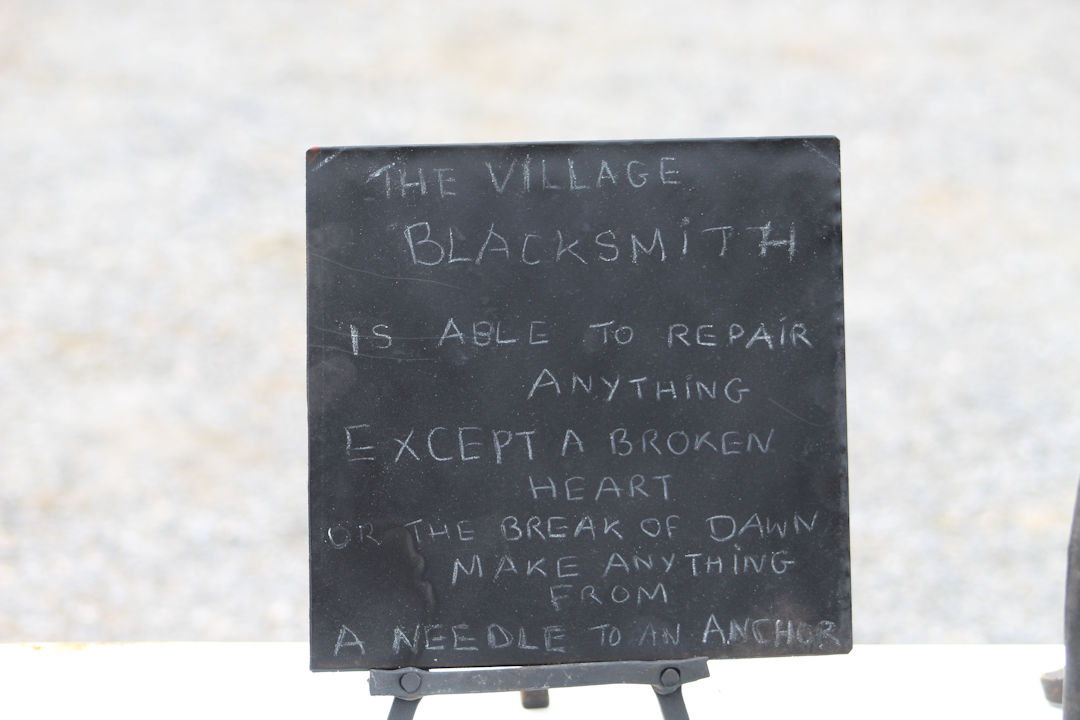 THE VILLAGE
BLACKSMITH
IS ABLE TO REPAIR
ANYTHING
EXCEPT A BROKEN
HEART
OR THE BREAK OF DAWN
MAKE ANYTHING
FROM
A NEEDLE TO AN ANCHOR